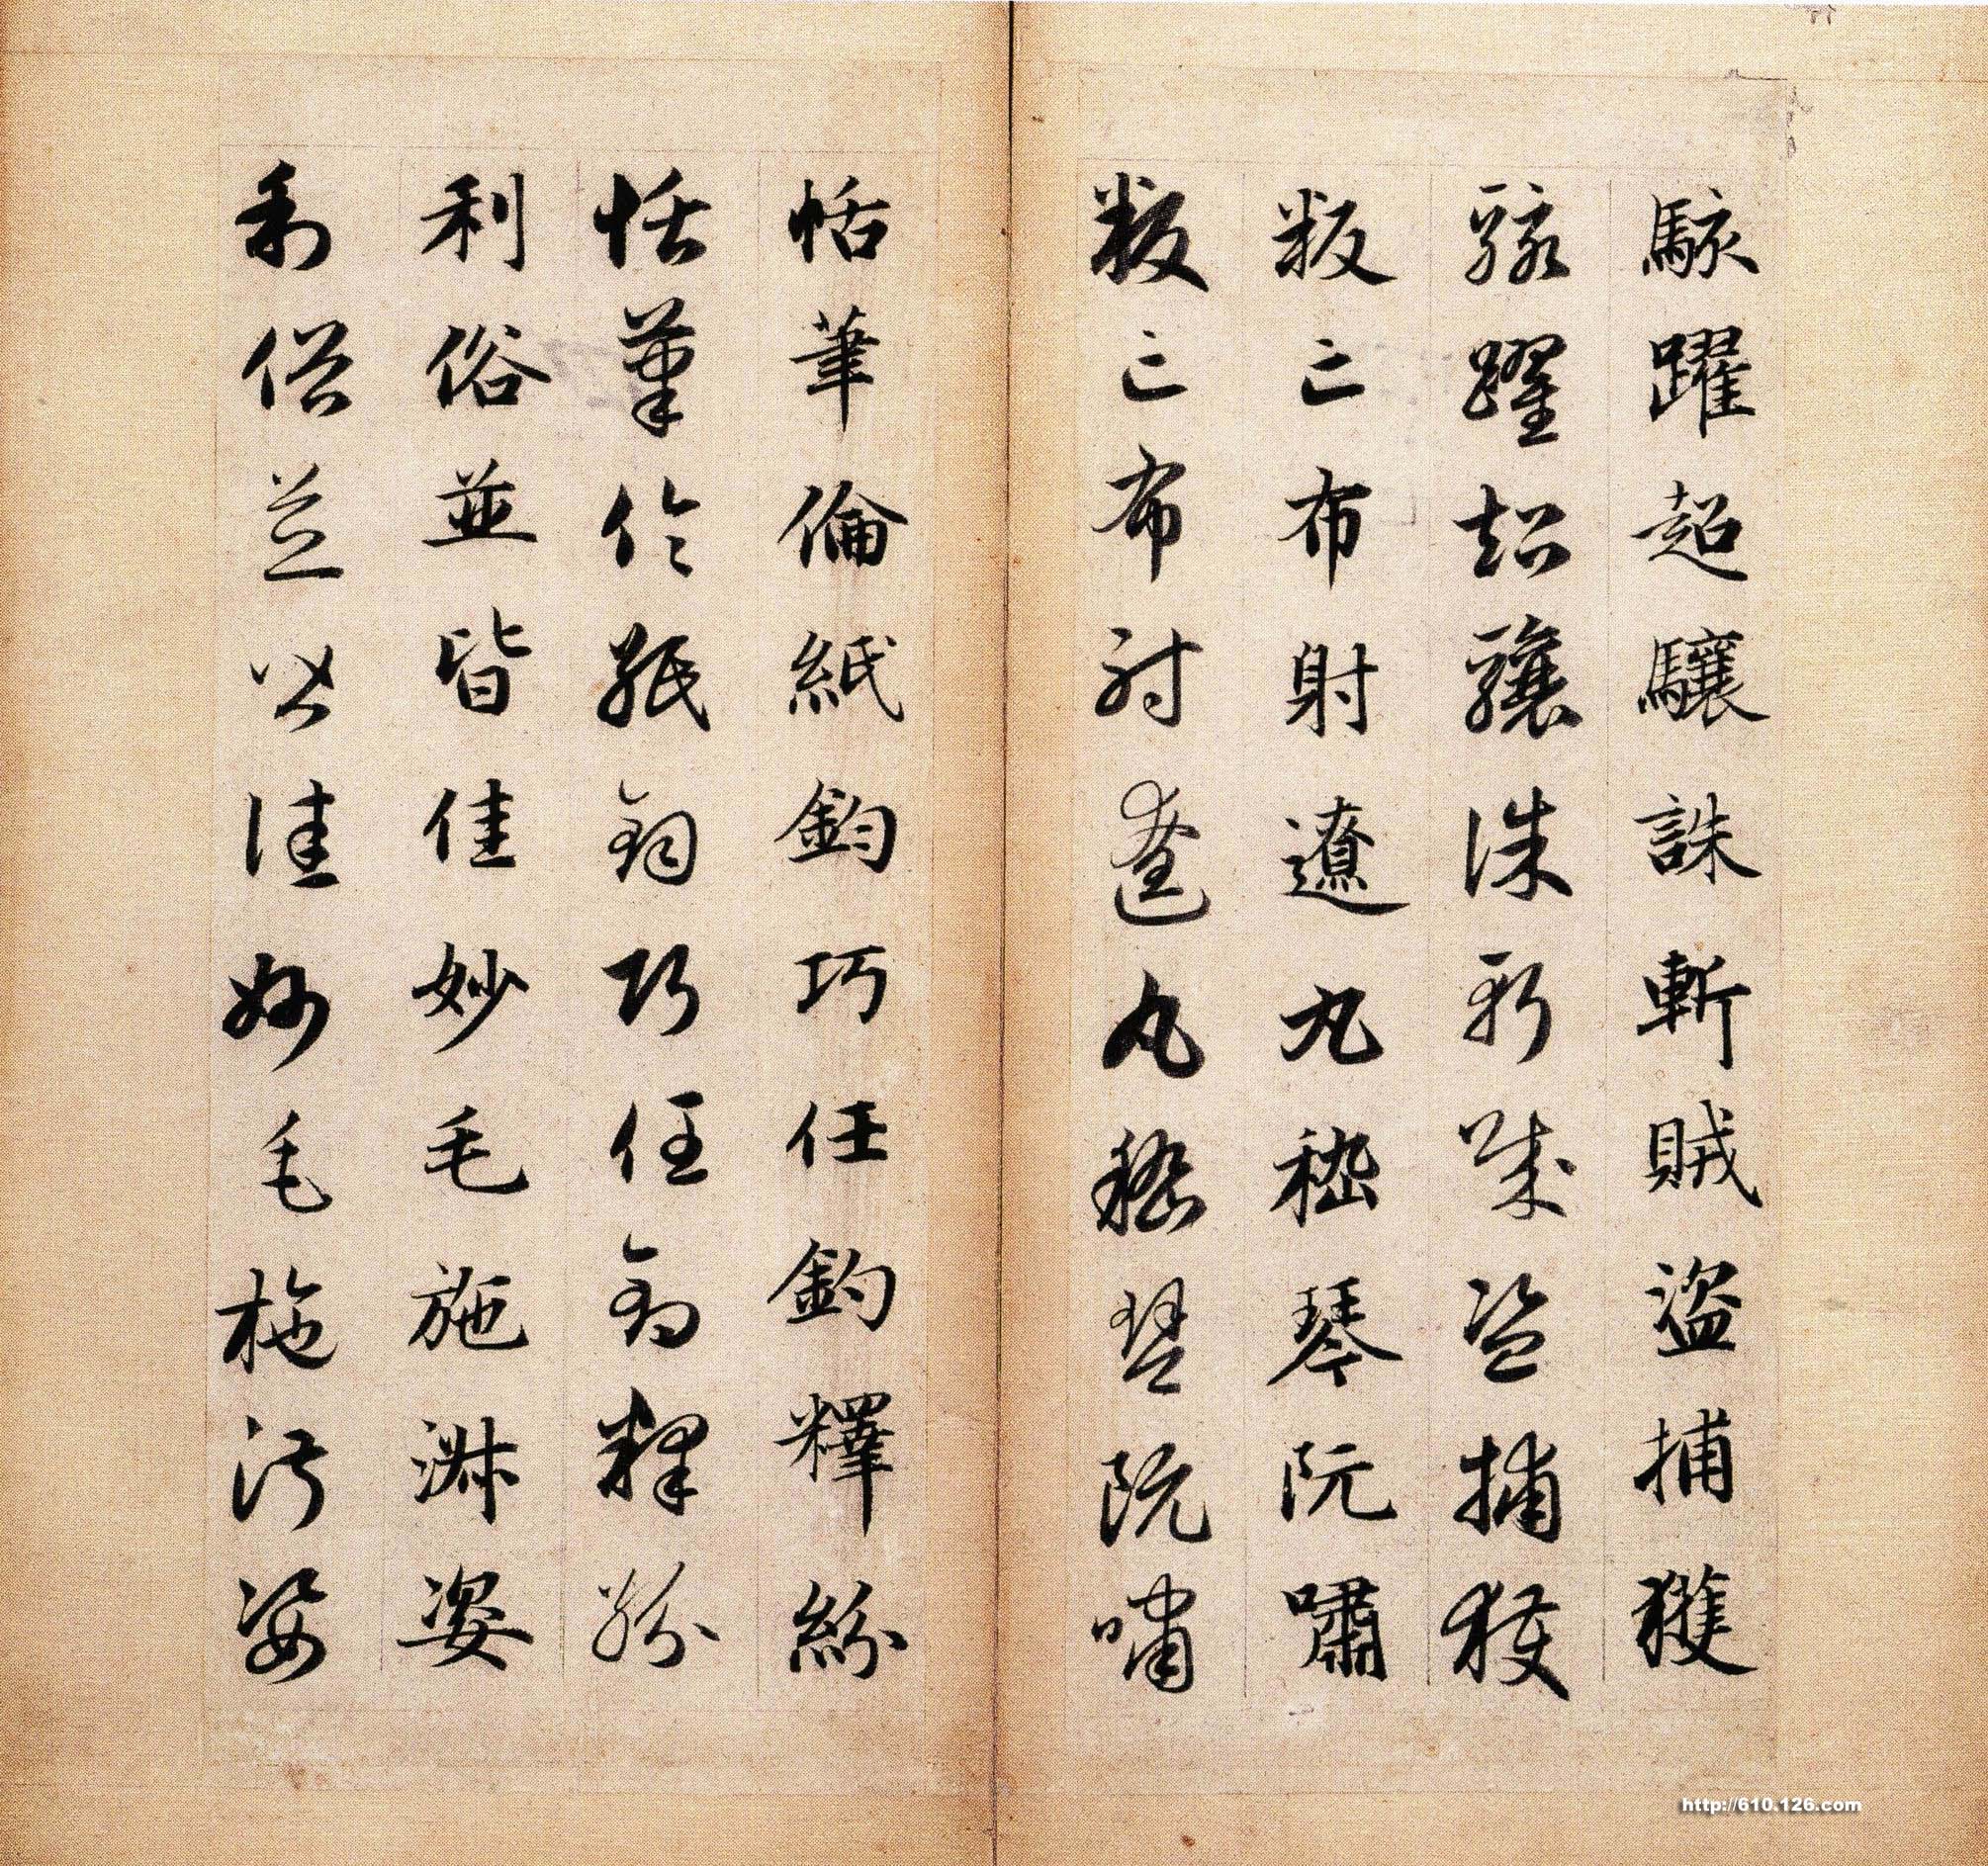 駭躍超驤誅斬賊盜捕獲
駭躍超驤誅斬賊盜捕獲
叛亡布射遼丸嵇琴阮嘯
叛亡布射遼丸嵇琴阮嘯
恬筆倫紙鈞巧任釣釋紛
恬筆倫紙鈞巧任釣釋紛
利俗並皆佳妙毛施淑姿
利俗並皆佳妙毛施淑姿
http://610.126.com